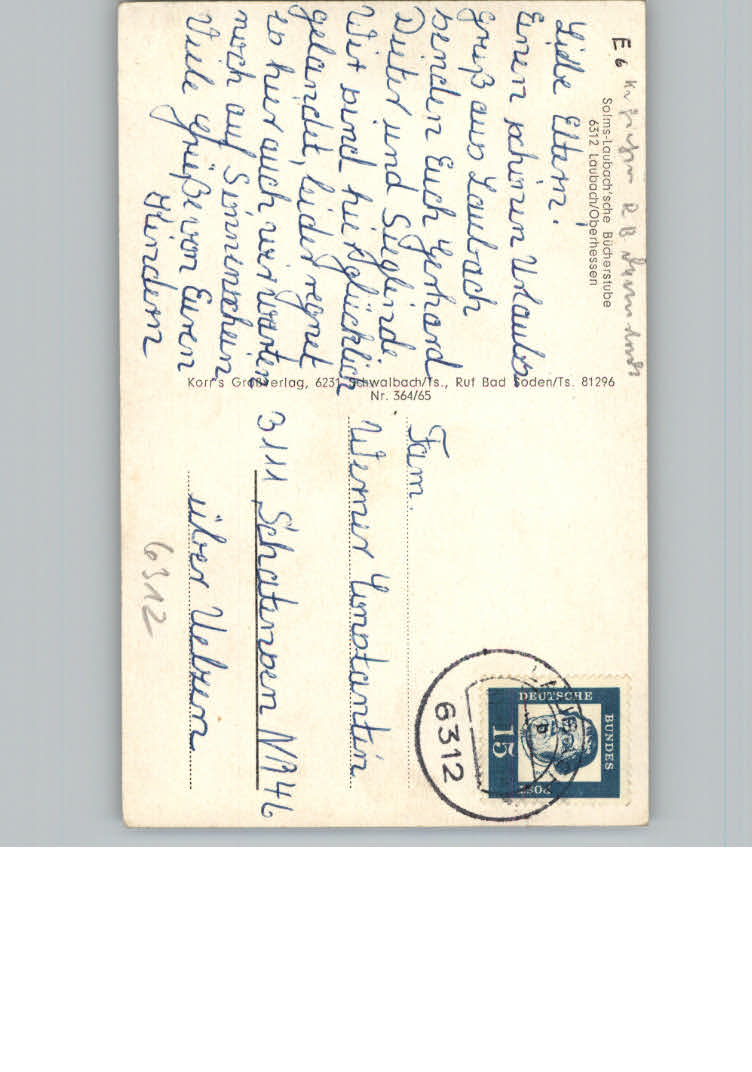 E 6
Solms-Laubach'sche Bücherstube
6312 Laubach/Oberhessen
Liebe Eltern.
Einen schönen Urlaubs
gruß aus Laubach
senden Euch Gerhard
Dieter und Sieglinde
Wir sind hier glücklich
gelandet, leider regnet
es hier auch wir warten
noch auf Sonnenschein
Viele Grüße von Euren
Kindern
Korr's Großverlag, 6231 Schwalbach/Ts., Ruf Bad Soden/Ts. 81296
Nr. 364/65
DEUTSCHE
BUNDES
POST
15
6312
b
Fam.
Werner
3111 Schatensen N 46
über Uelzen
6312